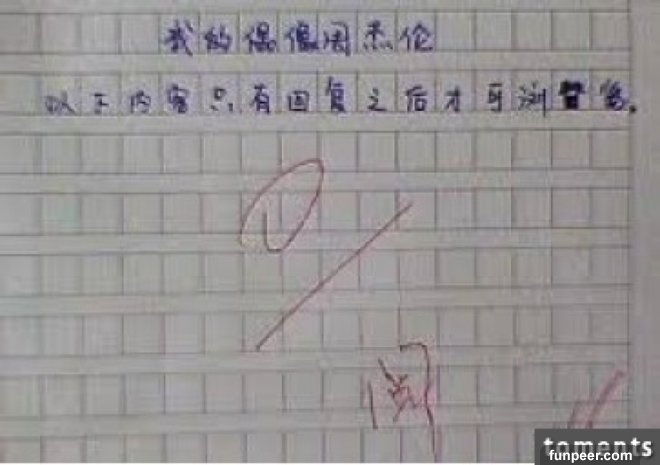 我的偶像周杰伦
以下内容只有回复之后才可浏览。
0
阅
toments
funpeer.com